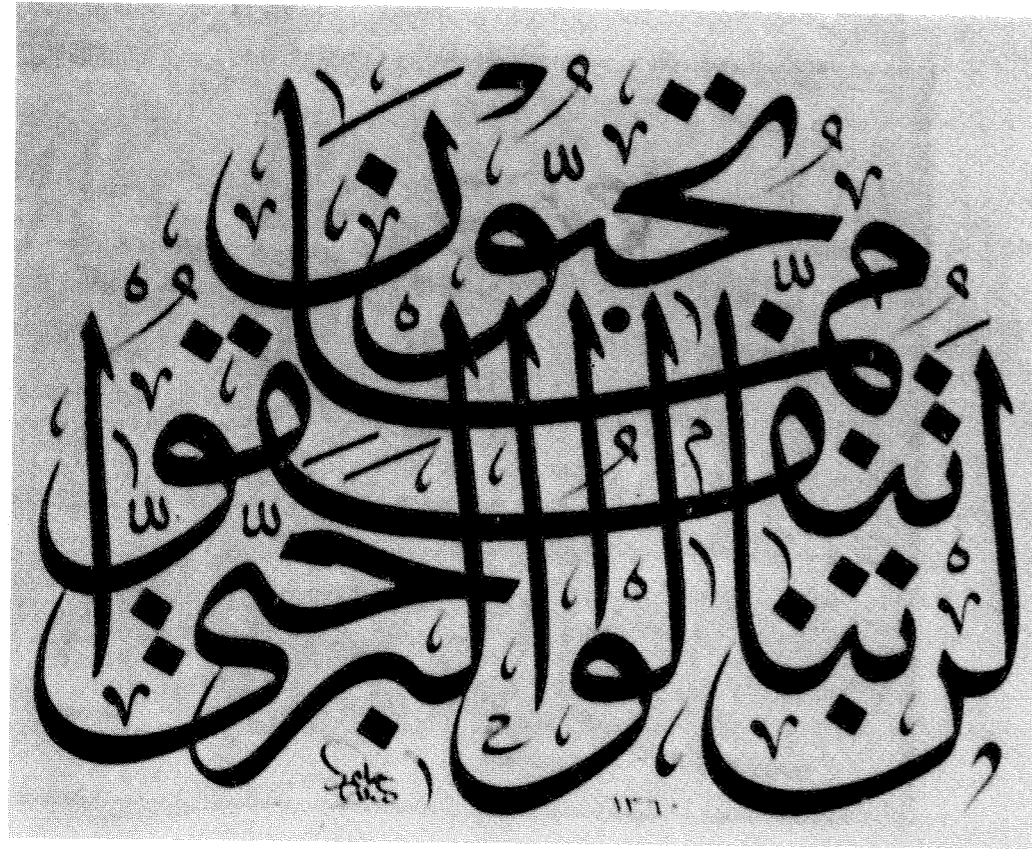 لَنْ تَنَالُوا الْبِرَّ حَتَّى تُنْفِقُوا مِمَّا تُحِبُّونَ
١٣٦٠